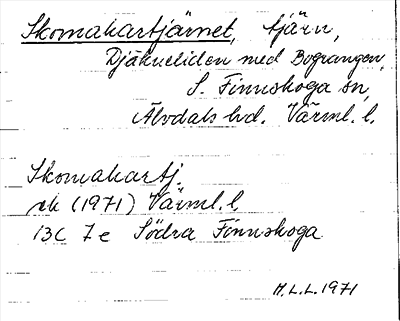 Skomakartjärnet, tjärn,
Djäkneliden med Bograngen,
S. Finnskoga sn,
Älvdals hd. Värml. l.
Skomakartj.
ek (1971) Värml. l
13C 7e Södra Finnskoga
H.L.L. 1971